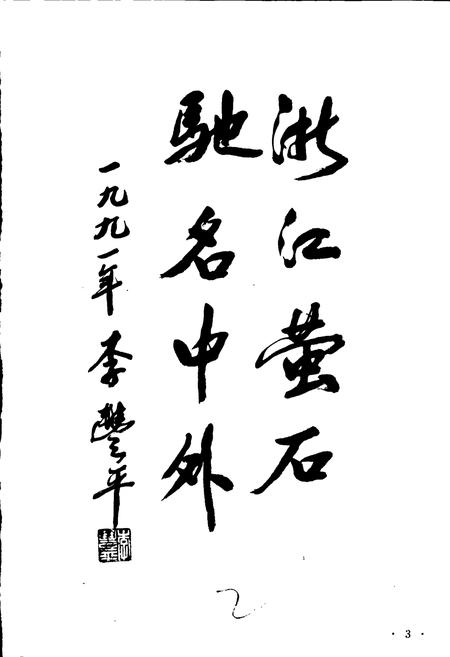 浙江萤石
驰名中外
一九九一年 李豐平
· 3 ·